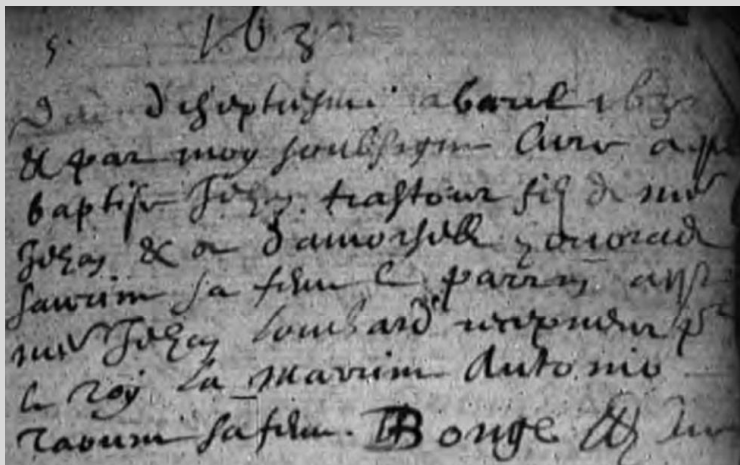 5. 163
Du dixseptiesme abvril 163
& par moy soubsigne Cure a
baptise Jehan trastour filz de mr
Jehan & a damoyselle honorade
saurine sa feme le parrin
mr Jehan lombard recepveur pr
le roy la marrine Antonie
raouine sa feme. Bonge